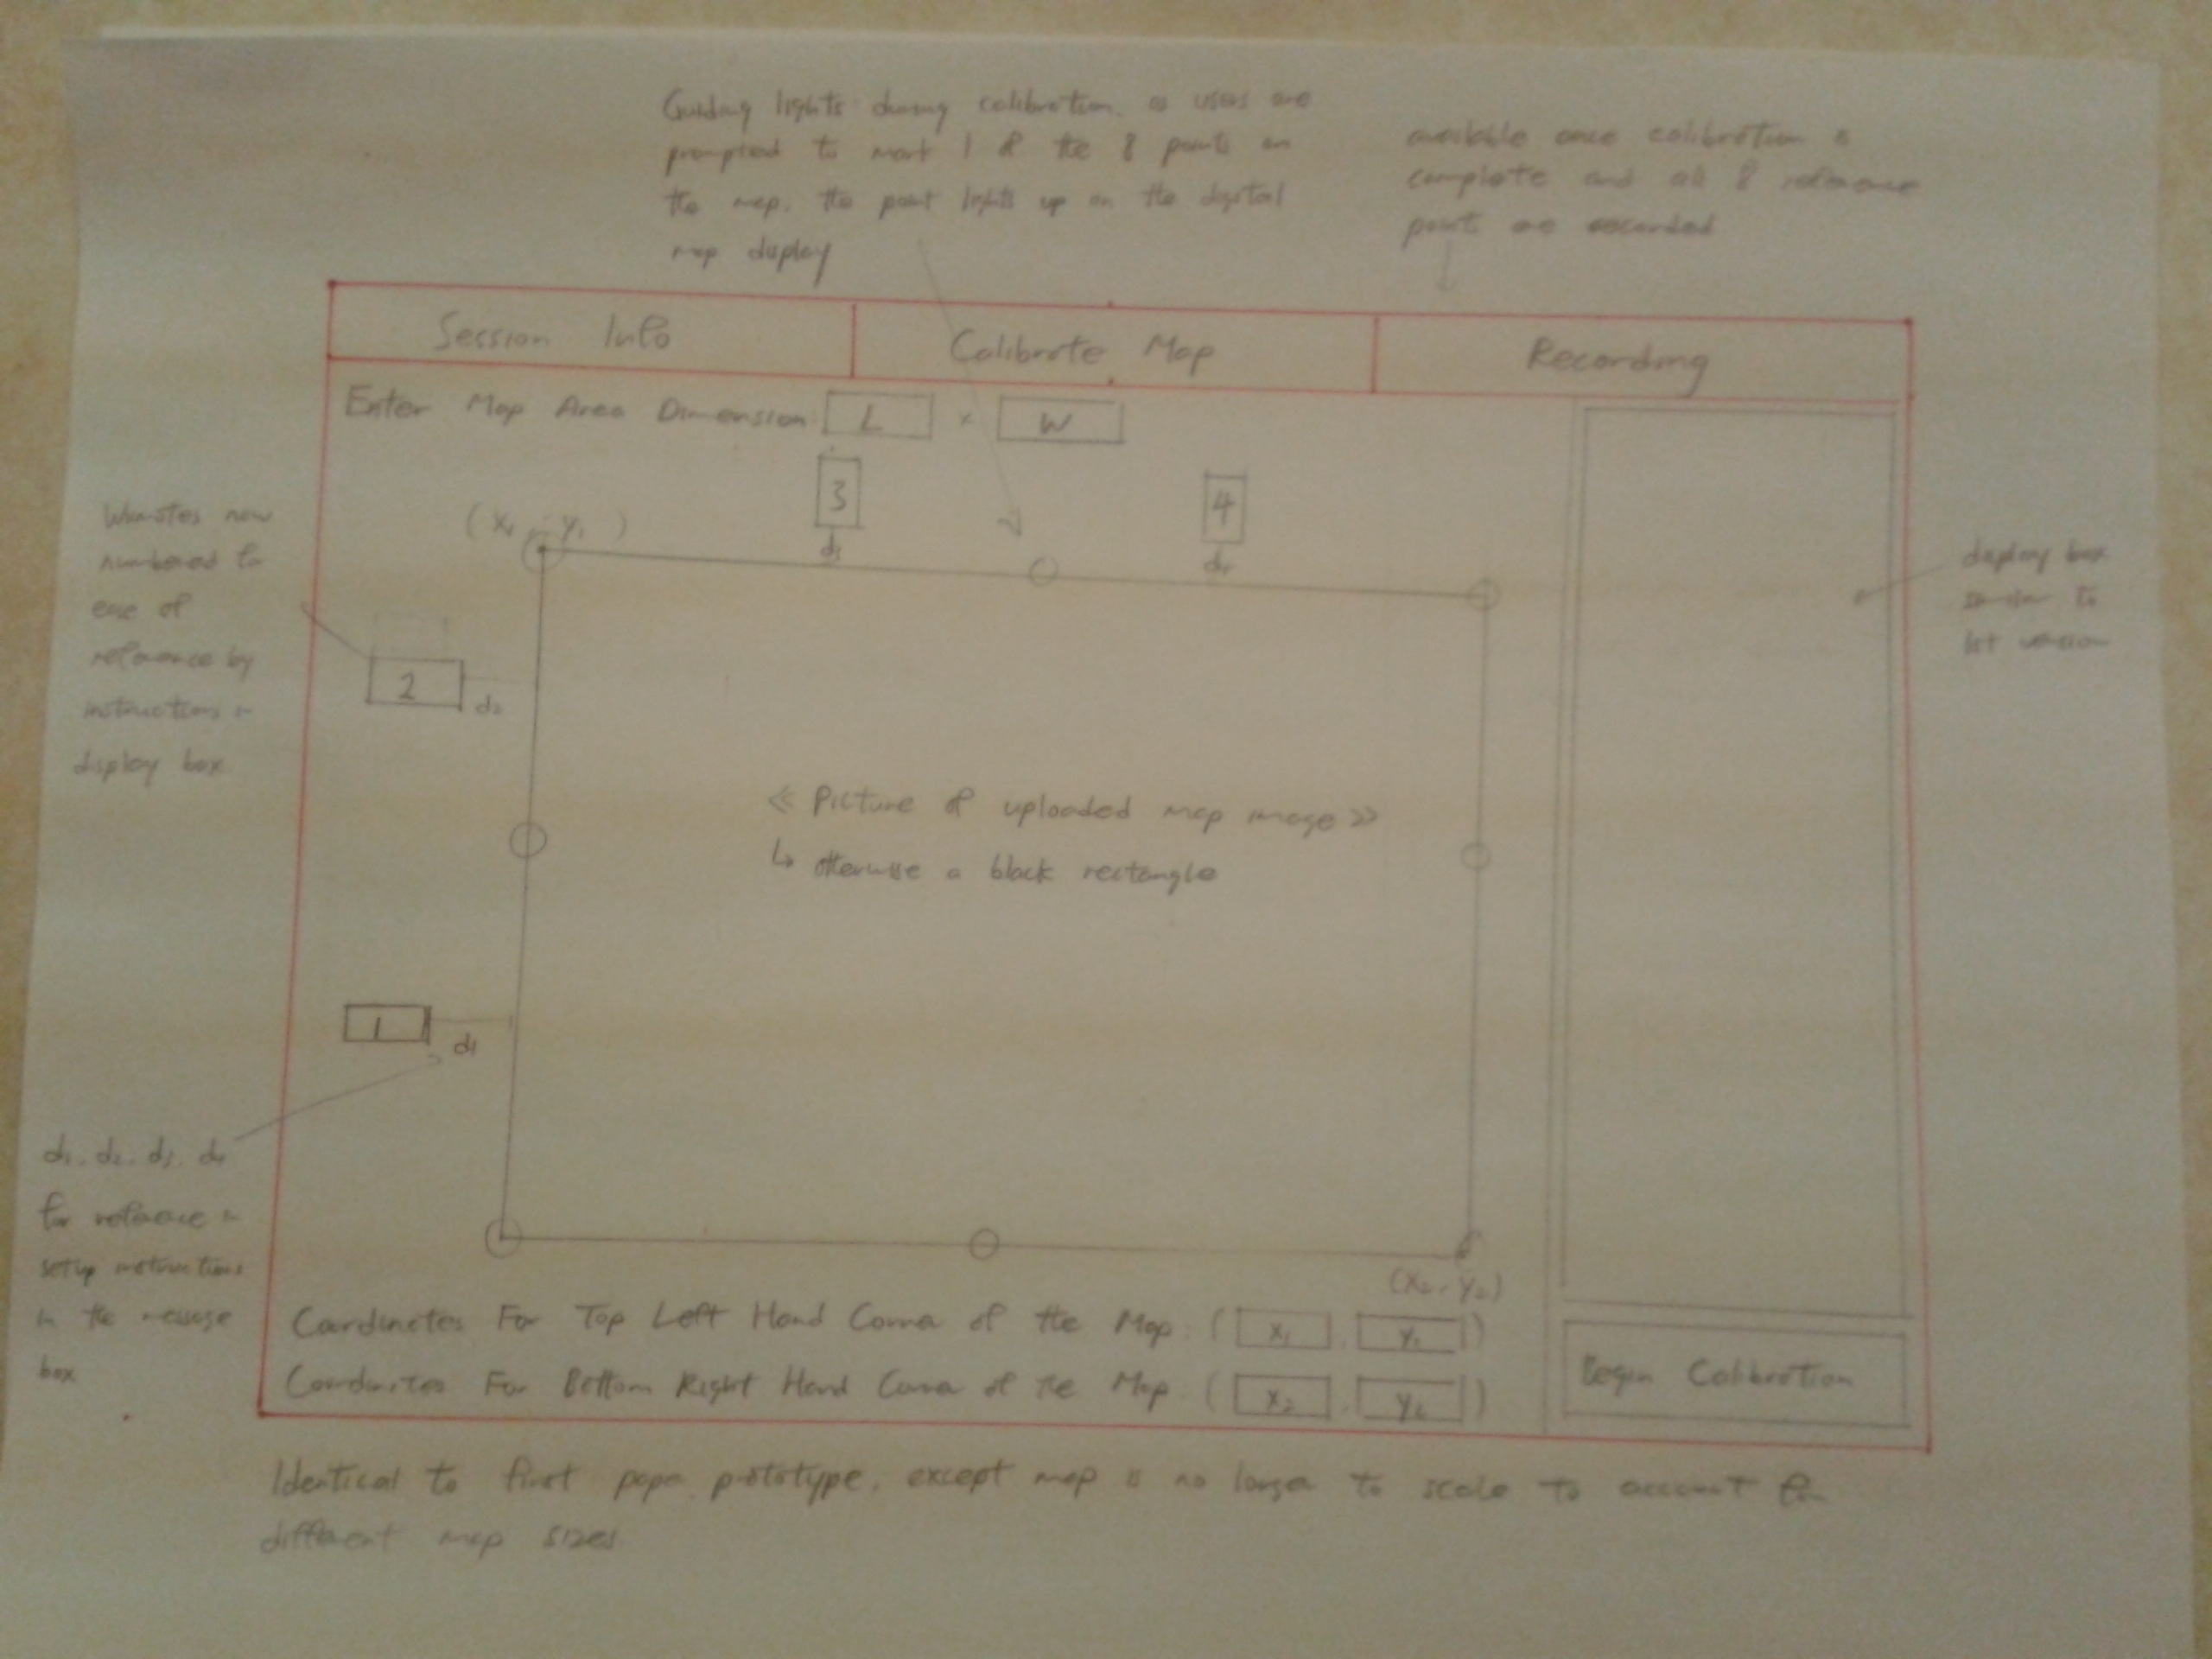 Guiding lights during calibration. as users are
prompted to mark 1 of the 8 points on
the map. the point lights up on the digital
map display
available once calibration is
complete and all 8 reference
points are recorded
Session Info
Calibrate Map
Recording
Enter Map Area Dimension: L × W
3
4
d3
d4
(x1, y1)
Wiimotes now
numbered for
ease of
reference by
instructions in
display box.
2
d2
display box
similar to
1st version
<< Picture of uploaded map image >>
↳ otherwise a black rectangle
1
d1
d1, d2, d3, d4
for reference in
setup instructions
in the message
box
(x2, y2)
Coordinates For Top Left Hand Corner of the Map: (x1, y1)
Coordinates For Bottom Right Hand Corner of the Map: (x2, y2)
Begin Calibration
Identical to first paper prototype, except map is no longer to scale to account for
different map sizes.